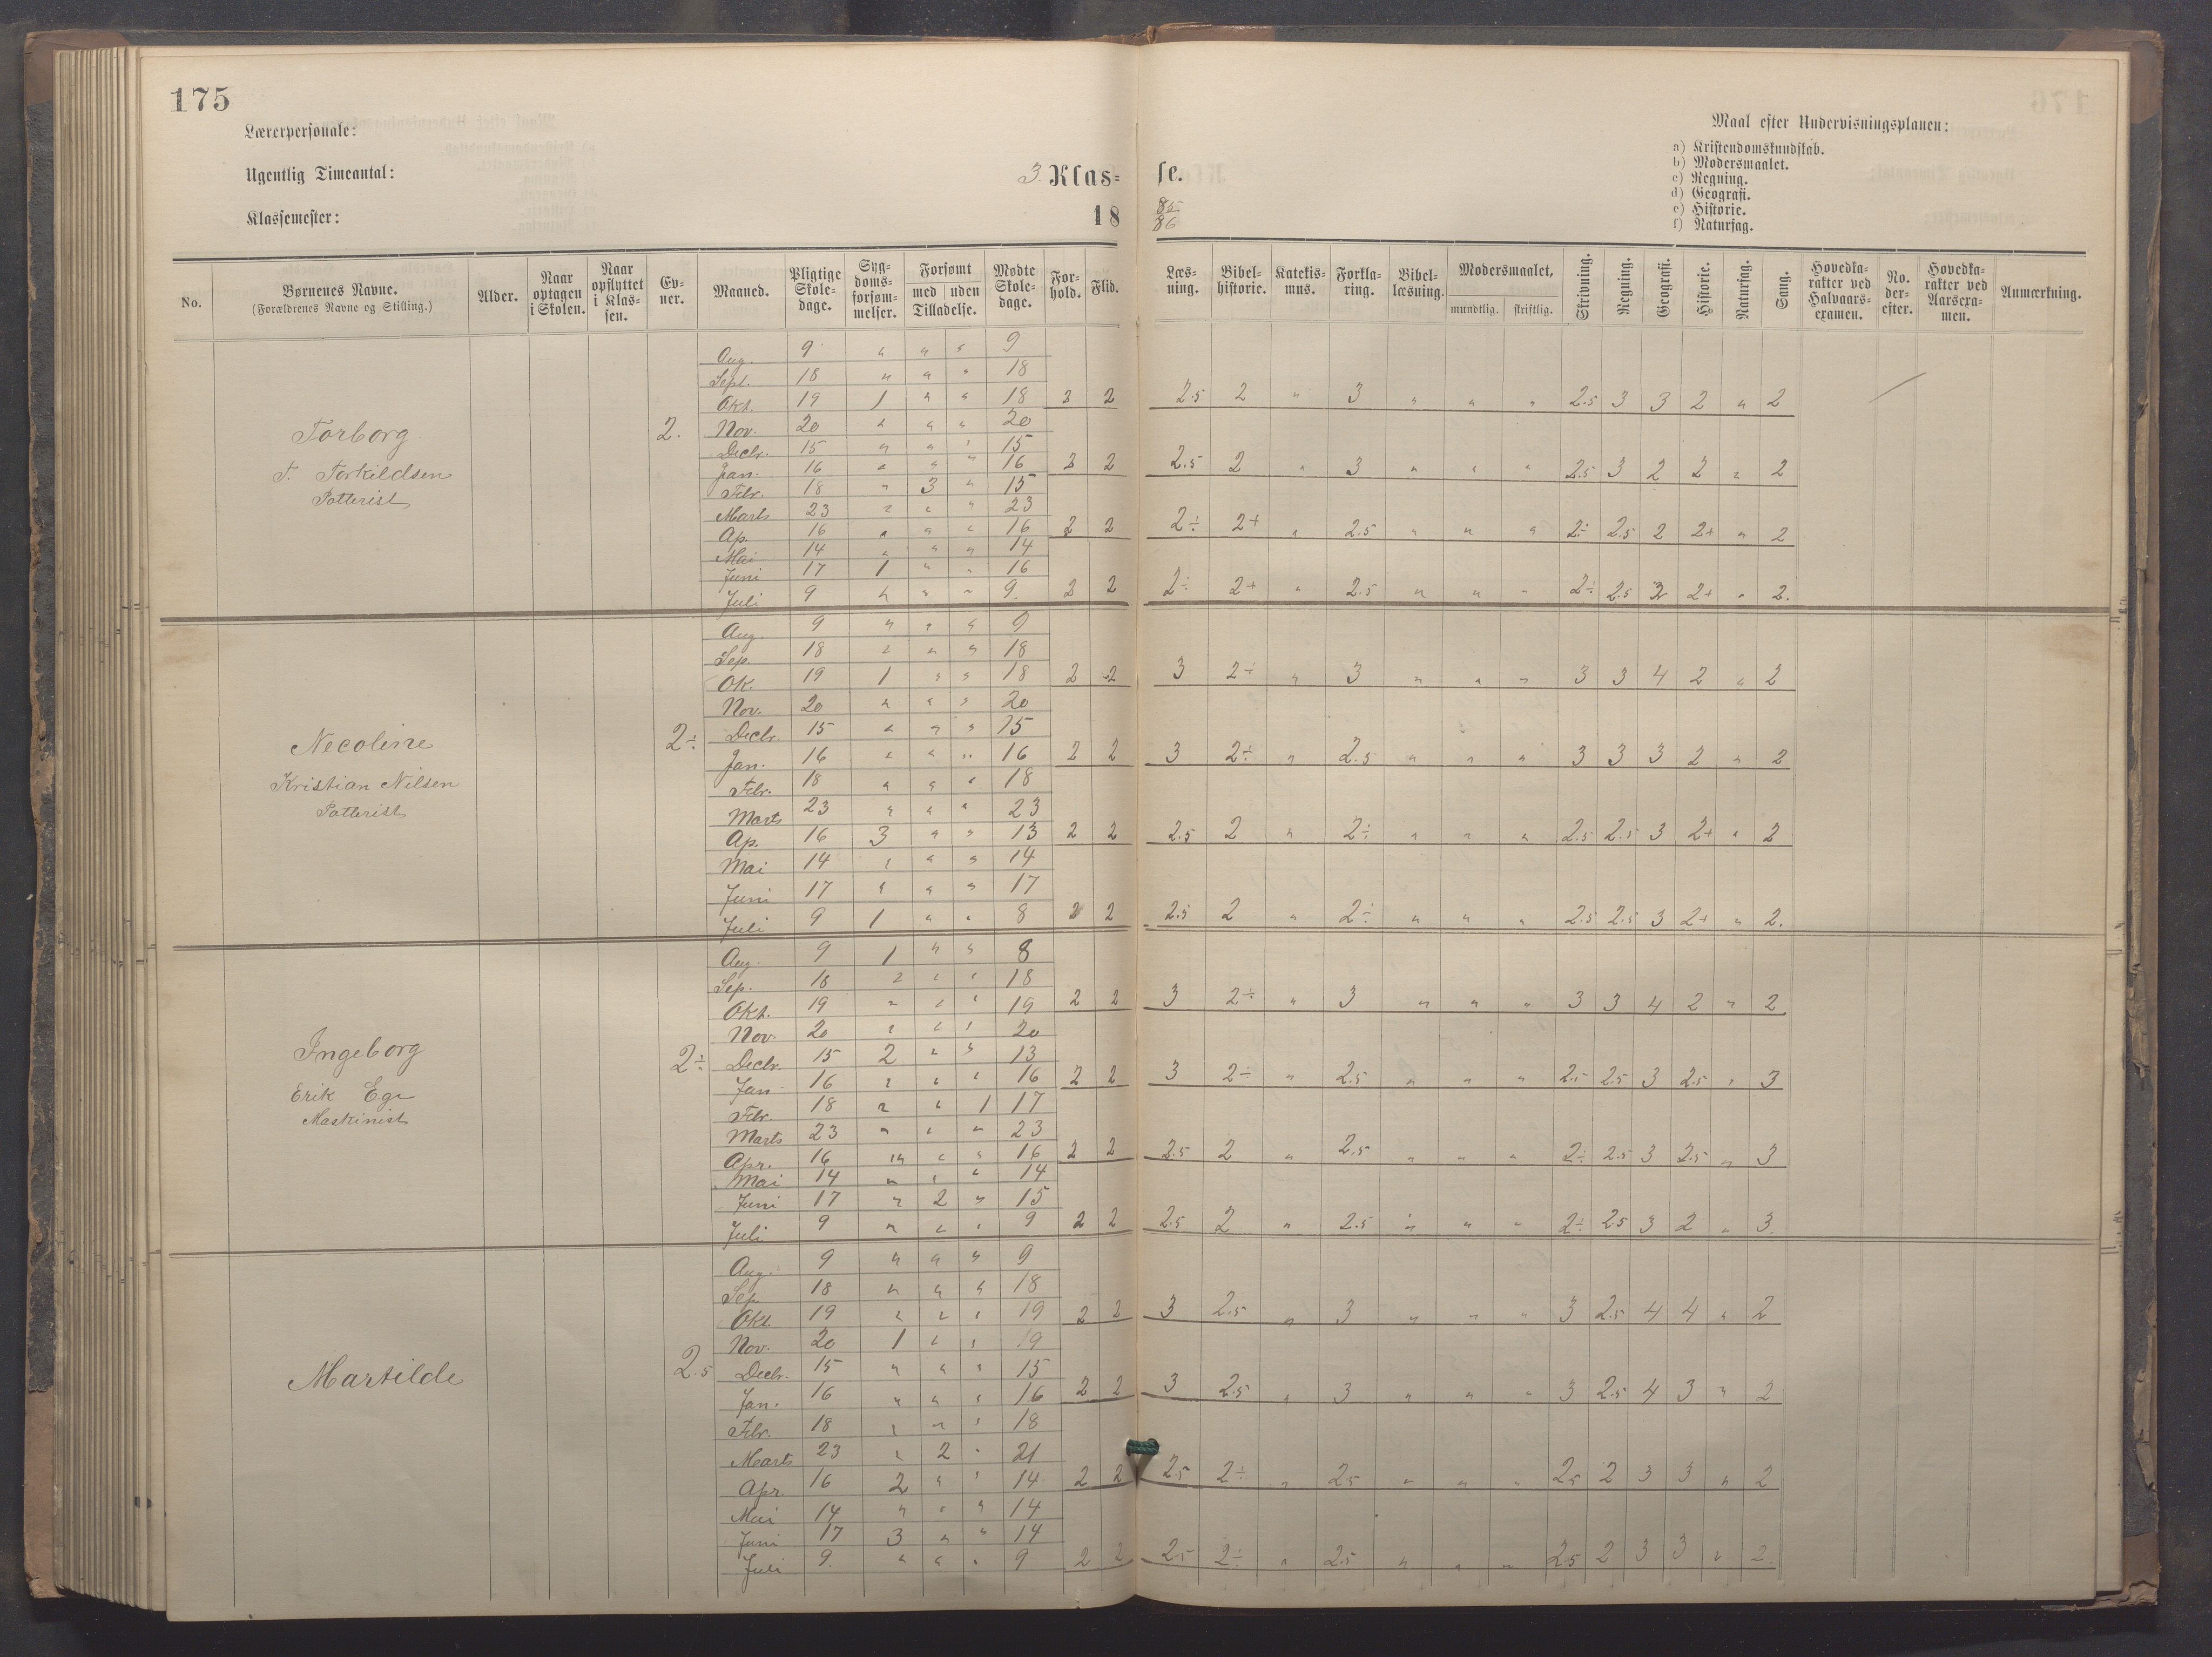 175
Lærerpersonale:
Ugentlig Timeantal:
Klassemester:
3. Klas-
se.
18
85
86
Maal efter Undervisningsplanen:
a) Kristendomskundskab.
b) Modersmaalet.
c) Regning.
d) Geografi.
e) Historie.
f) Naturfag.
No. Børnenes Navne. (Forældrenes Navne og Stilling.) Alder. Naar optagen i Skolen. Naar opflyttet i Klassen. Evner. Maaned. Pligtige Skoledage. Sygdomsforsømmelser. Forsømt med uden Tilladelse. Mødte Skoledage. Forhold. Flid. Læsning. Bibelhistorie. Katekismus. Forklaring. Bibellæsning. Modersmaalet, mundtlig. skriftlig. Skrivning. Regning. Geografi. Historie. Naturfag. Sang. Hovedkarakter ved Halvaarsexamen. No. derefter. Hovedkarakter ved Aarsexamen. Anmærkning.
Torborg
T. Torkildsen
Potterist
2.
Aug. 9 " " " 9
Sept. 18 " " " 18
Okt. 19 1 " " 18 2 2 2.5 2 " 3 " " " 2.5 3 3 2 " 2
Nov. 20 " " " 20
Decbr. 15 " " " 15
Jan. 16 " " " 16 2 2 2.5 2 " 3 " " " 2.5 3 2 2 " 2
Febr. 18 " 3 " 15
Marts 23 " " " 23
Ap. 16 " " " 16 2 2 2÷ 2+ " 2.5 " " " 2÷ 2.5 2 2+ " 2
Mai 14 " " " 14
Juni 17 1 " " 16
Juli 9 " " " 9. 2 2 2÷ 2+ " 2.5 " " " 2÷ 2.5 2 2+ " 2.
Necoline
Kristian Nilsen
Potterist
2÷
Aug. 9 " " " 9
Sep. 18 " " " 18
Ok. 19 1 " " 18 2 2 3 2÷ " 3 " " " 3 3 4 2 " 2
Nov. 20 " " " 20
Decbr. 15 " " " 15
Jan. 16 " " " 16 2 2 3 2÷ " 2.5 " " " 3 3 3 2 " 2
Febr. 18 " " " 18
Marts 23 " " " 23
Ap. 16 3 " " 13 2 2 2.5 2 " 2÷ " " " 2.5 2.5 3 2+ " 2
Mai 14 " " " 14
Juni 17 " " " 17
Juli 9 1 " " 8 2 2 2.5 2 " 2÷ " " " 2.5 2.5 3 2+ " 2.
Ingeborg
Erik Ege
Maskinist
2÷
Aug. 9 1 " " 8
Sep. 18 " " " 18
Okt. 19 " " " 19 2 2 3 2÷ " 3 " " " 3 3 4 2 " 2
Nov. 20 " " " 20
Decbr. 15 2 " " 13
Jan 16 " " " 16 2 2 3 2÷ " 2.5 " " " 2.5 2.5 3 2.5 " 3
Febr. 18 " " 1 17
Marts 23 " " " 23
Apr. 16 " " " 16 2 2 2.5 2 " 2.5 " " " 2÷ 2.5 3 2.5 " 3
Mai 14 " " " 14
Juni 17 " 2 " 15
Juli 9 " " " 9 2 2 2.5 2 " 2.5 " " " 2÷ 2.5 3 2 " 3.
Martilde
2.5
Aug. 9 " " " 9
Sep. 18 " " " 18
Okt 19 " " " 19 2 2 3 2.5 " 3 " " " 3 2.5 4 4 " 2
Nov. 20 1 " " 19
Decbr. 15 " " " 15
Jan. 16 " " " 16 2 2 3 2.5 " 3 " " " 3 2.5 4 3 " 2
Febr. 18 " " " 18
Marts 23 " 2 " 21
Apr. 16 2 " " 14 2 2 2.5 2÷ " 2.5 " " " 2.5 2 3 3 " 2
Mai 14 " " " 14
Juni 17 3 " " 14
Juli 9. " " " 9 2 2 2.5 2÷ " 2.5 " " " 2.5 2 3 3 " 2.